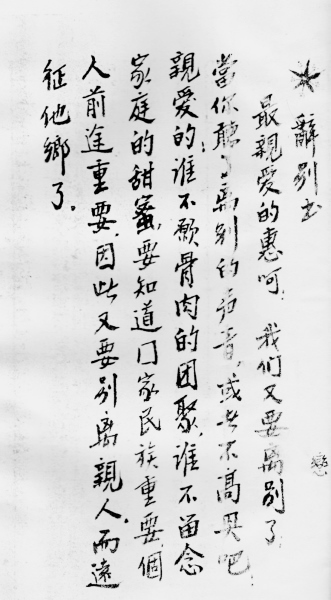 ★ 辭别书
最親爱的惠呵！我们又要离别了！
戀
當你聽了离别的声音，或者不高兴吧！
親爱的！谁不願骨肉的团聚，谁不留念
家庭的甜蜜，要知道囗家民族重要，個
人前途重要，因此又要别离親人，而遠
征他鄉了。